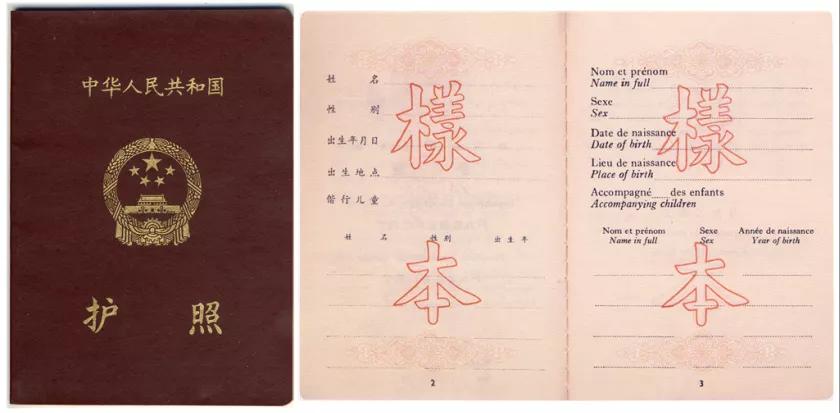 中华人民共和国
护 照
姓 名
性 别
出生年月日
出生地点
偕行儿童
姓 名 性别 出生年
樣
本
2
Nom et prénom
Name in full
Sexe
Sex
Date de naissance
Date of birth
Lieu de naissance
Place of birth
Accompagné des enfants
Accompanying children
Nom et prénom Sexe Année de naissance
Name in full Sex Year of birth
樣
本
3